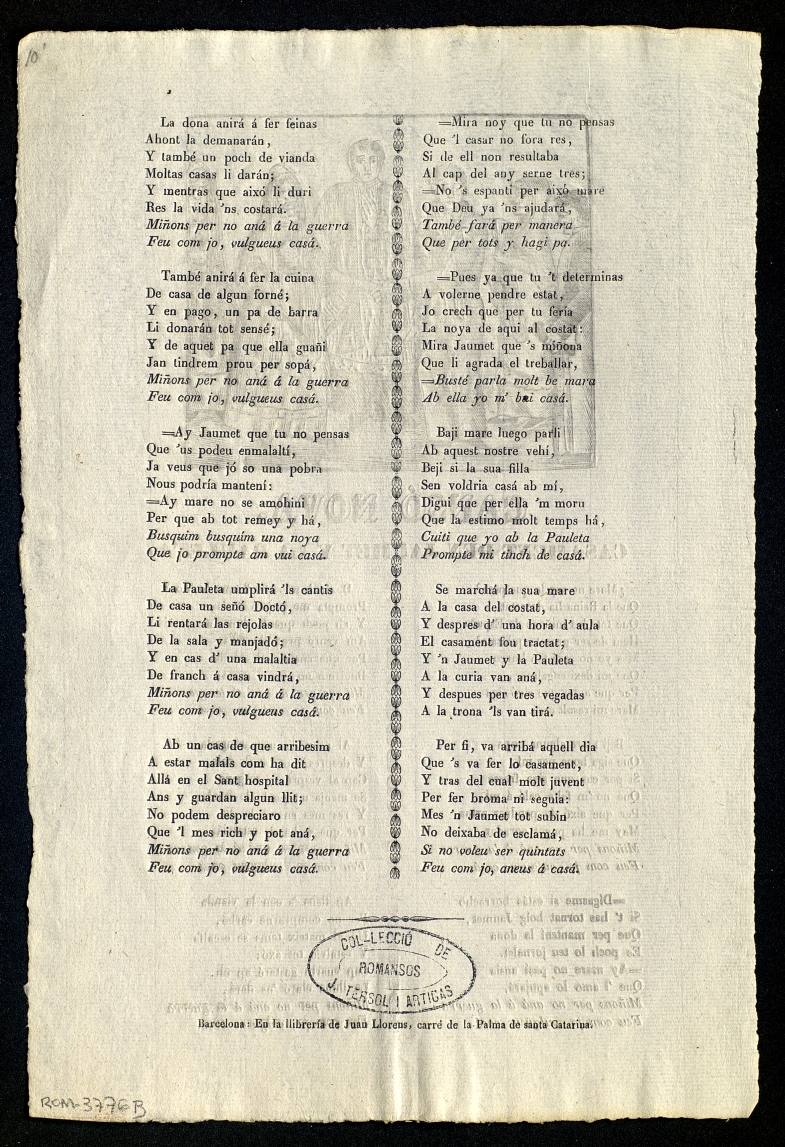 10
La dona anirá á fer feinas
Ahont la demanarán,
Y també un poch de vianda
Moltas casas li darán;
Y mentras que aixó li duri
Res la vida 'ns costará.
Miñons per no aná á la guerra
Feu com jo, vulgueus casá.
També anirá á fer la cuina
De casa de algun forné;
Y en pago, un pa de barra
Li donarán tot sensé;
Y de aquet pa que ella guañi
Jan tindrem prou per sopá,
Miñons per no aná á la guerra
Feu com jo, vulgueus casá.
=Ay Jaumet que tu no pensas
Que 'us podeu enmalaltí,
Ja veus que jó so una pobra
Nous podría mantení:
=Ay mare no se amohini
Per que ab tot remey y há,
Busquim busquim una noya
Que jo prompte am vui casá.
La Pauleta umplirá 'ls cantis
De casa un señó Doctó,
Li rentará las rejolas
De la sala y manjadó;
Y en cas d' una malaltia
De franch á casa vindrá,
Miñons per no aná á la guerra
Feu com jo, vulgueus casá.
Ab un cas de que arribesim
A estar malals com ha dit
Allá en el Sant hospital
Ans y guardan algun llit;
No podem despreciaro
Que 'l mes rich y pot aná,
Miñons per no aná á la guerra
Feu com jo, vulgueus casá.
=Mira noy que tu no pensas
Que 'l casar no fora res,
Si de ell non resultaba
Al cap del any serne tres;
=No 's espanti per aixó mare
Que Deu ya 'ns ajudará,
També fará per manera
Que per tots y hagi pa.
=Pues ya que tu 't determinas
A volerne pendre estat,
Jo crech que per tu seria
La noya de aqui al costat:
Mira Jaumet que 's miñona
Que li agrada el treballar,
=Busté parla molt be mara
Ab ella yo m' hai casá.
Baji mare luego parli
Ab aquest nostre vehí,
Beji si la sua filla
Sen voldria casá ab mí,
Digui que per ella 'm moru
Que la estimo molt temps há,
Cuiti que yo ab la Pauleta
Prompte mi tinch de casá.
Se marchá la sua mare
A la casa del costat,
Y despres d' una hora d' aula
El casament fou tractat;
Y 'n Jaumet y la Pauleta
A la curia van aná,
Y despues per tres vegadas
A la trona 'ls van tirá.
Per fi, va arribá aquell dia
Que 's va fer lo casament,
Y tras del cual molt juvent
Per fer broma ni seguia:
Mes 'n Jaumet tot subin
No deixaba de esclamá,
Si no voleu ser quintats
Feu com jo, aneus á casá.
COL·LECCIÓ DE
ROMANSOS
J. TERSOL I ARTIGAS
Barcelona: En la llibrería de Juan Llorens, carré de la Palma de santa Catarina.
ROM-3776B